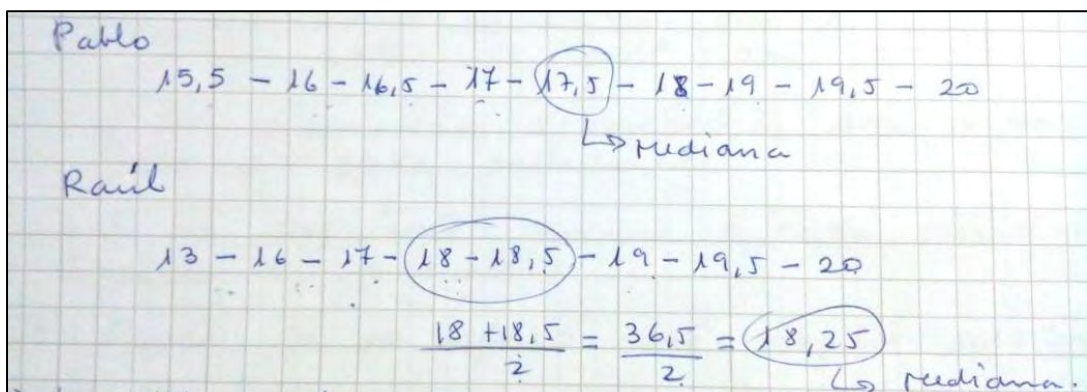 Pablo
15,5 - 16 - 16,5 - 17 - 17,5 - 18 - 19 - 19,5 - 20
↳ mediana
Raúl
13 - 16 - 17 - 18 - 18,5 - 19 - 19,5 - 20
18 + 18,5 / 2 = 36,5 / 2 = 18,25
↳ mediana.